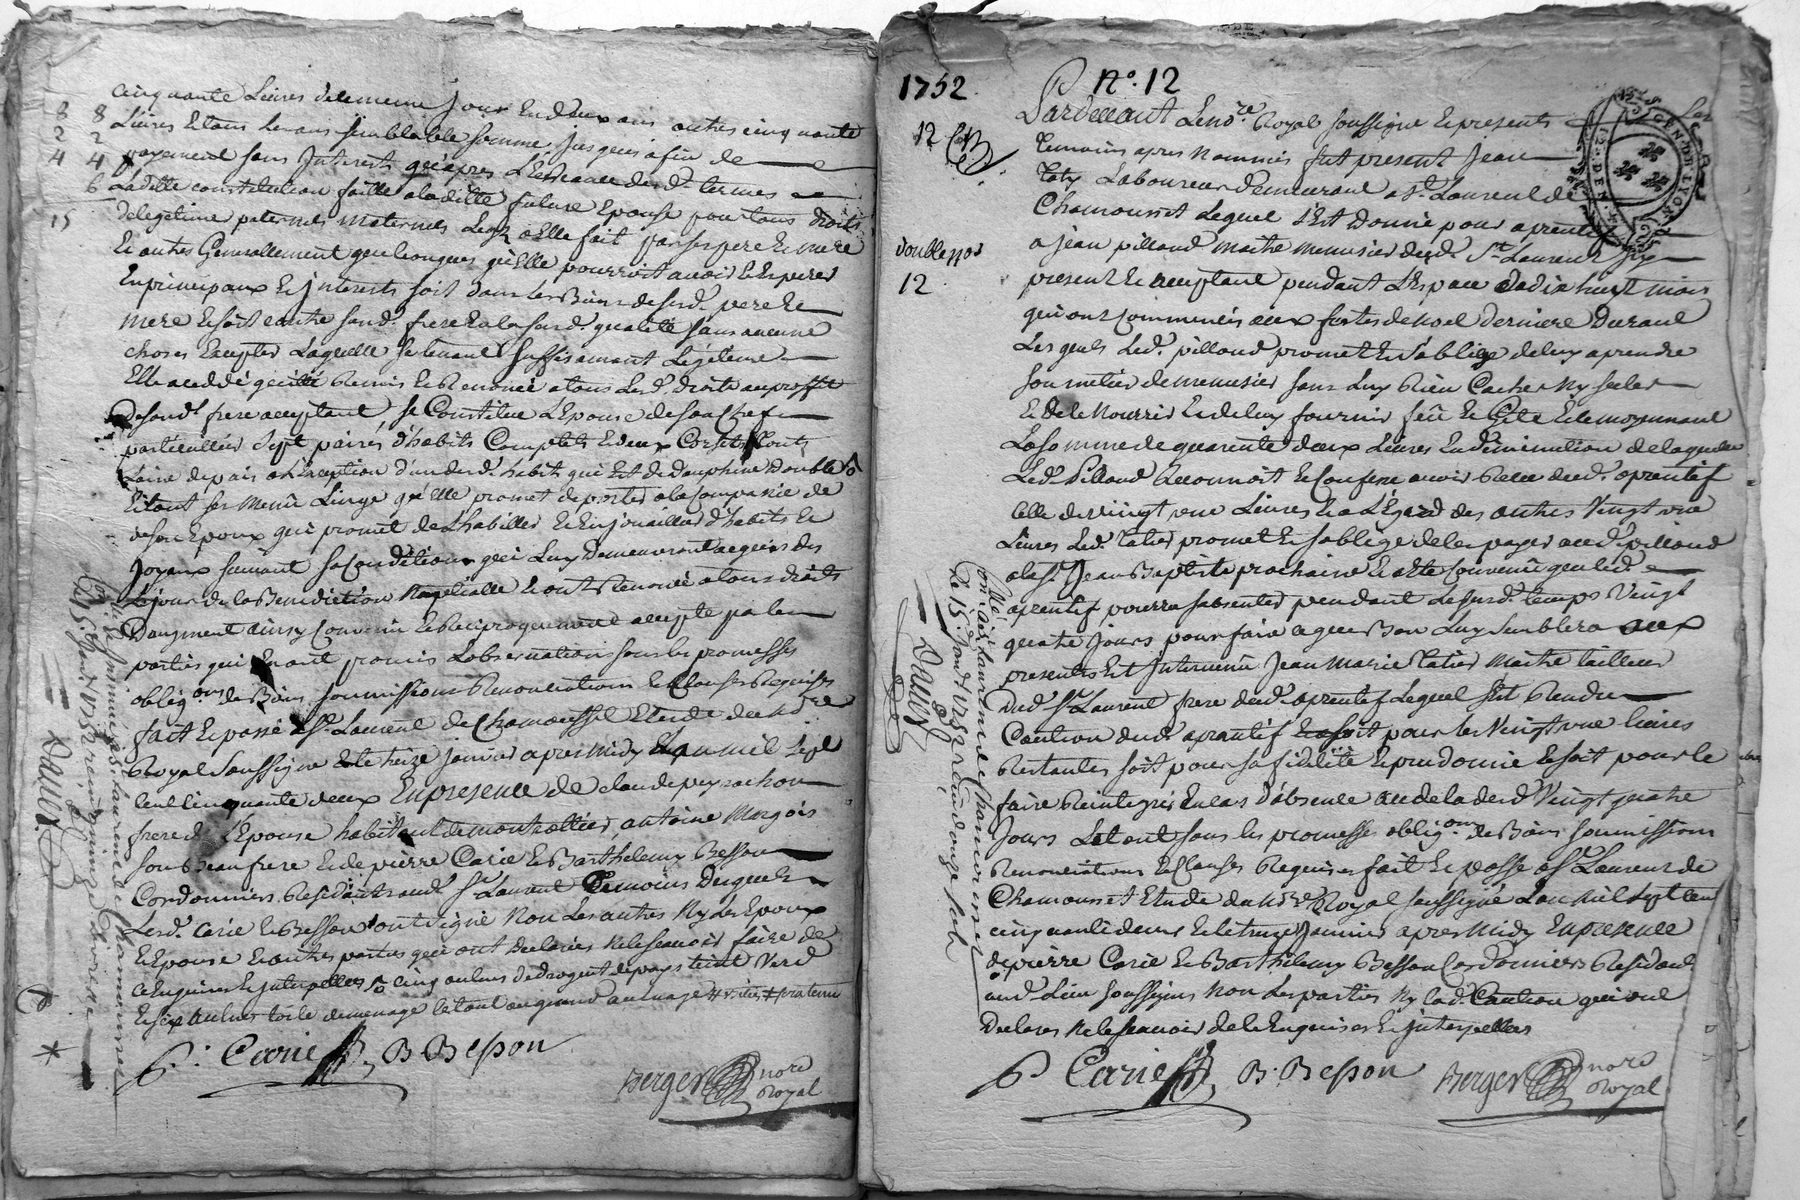 cinquante Livres de la meme jour en deux ans autres cinquante
Livres et tous les ans semblable somme jusques a fin de
payement sans Interests qu'apres L'echeance desd. termes
Laditte constitution faitte a laditte future Epouse pour tous droits
de legitime paternels maternels Legz a Elle fait par ses pere et mere
et autres Generallement quelconques qu'elle pourroit avoir et esperer
En principaux et Interests soit dans les Biens de sesd. pere et
mere et soit contre sond. frere en lad. qualité sans aucune
choses Excepter Laquelle se tenant suffisamment Legitimée
Elle a cedé quitté Remis et Renoncé a tous Lesd. droits au proffit
de sond. frere acceptant se Constitue L'Epouse de son chef
particulier sept paires d'habits Complets et deux Corsets
Laine de pais a L'exception d'un desd. habits qui est de Dauphine double
Et tout son menu Linge qu'elle promet de porter a la Compagnie de
de son Epoux qui promet de L'habiller et Enjouailler d'habits et
Joyaux suivant sa Condition qui Luy Demeureront acquis des
Le jour de la Benediction Nuptialle et ont Renoncé a tous droits
D'augment ainsy Convenu et Reciproquement accepté par les
parties qui En ont promis L'observation sous les promesses
oblig.ons de Biens soumissions Renonciations et Clauses Requises
fait et passé a St. Laurent de Chamousset Etude du no.re
Royal Soussigné Le treize janvier apres midy L'an mil sept
cent cinquante deux En presence de Claude peyrachon
frere de L'Epouse habitant de montrottier, antoine Margois
son Beaufrere et de pierre Carié et Barthelemy Besson
Cordonniers Residants aud. St. Laurent temoins desquels
Lesd. Carié et Besson ont signé Non Les autres Ny Les Epoux
et Epouse et autres parties qui ont Declarés ne le sçavoir faire de
ce Enquis et Interpellés cinq aulnes de drogoet de pays teint Verd
Et six Aulnes toile de menage le tout au grand aulnage
P. Carié B. Besson
Berger nore
Royal
8 8
2 2
4 4
6
15
1752 N°. 12
Pardevant Le no.re Royal soussigné et presents Les
temoins apres nommés fut present Jean
Laboureur demeurant a St. Laurent de
Chamousset Lequel s'est Donné pour aprentif
a Jean pilland maitre menusier dud. St. Laurent Icy
present et acceptant pendant L'Espace de dix huit mois
qui ont commencés aux festes de noel derniere Durant
Les quels Led. pilland promet et s'oblige de luy aprendre
son metier de menusier sans Luy Rien Cacher Ny sceler
Et de le Nourrir et de luy fournir feu et Gite Et ce moyennant
La somme de quarente deux Livres En diminution de laquelle
Led. Pilland Reconnoit et Confesse avoir Reçu dud. aprentif
celle de vingt une Livres et a L'Egard des autres Vingt une
Livres Led. promet et s'oblige de les payer aud. pilland
a la St. Jean Baptiste prochaine et a Eté Convenu que led.
aprentif pourra s'absenter pendant Le susd. temps Vingt
quatre Jours pour faire ce que Bon Luy Semblera aux
presentes Est Intervenu Jean Marie maitre tailleur
Dud. St. Laurent frere dud. aprentif Lequel s'est Rendu
Caution dud. aprentif soit pour les Vingt une livres
Restantes soit pour sa fidelité et preudomie Et soit pour le
faire Reintegrer En cas d'absence au dela desd. Vingt quatre
Jours Le tout sous les promesses oblig.ons de Biens soumissions
Renonciations et Clauses Requises fait et passé a St. Laurent de
Chamousset Etude du no.re Royal soussigné L'an mil sept cent
cinquante deux Et le treize Janvier apres midy En presence
de pierre Carié et Barthelemy Besson Cordonniers Residants
aud. Lieu soussignés Non Les parties Ny lad. Caution qui ont
Declarés ne le sçavoir de ce Enquis et Interpellés
P. Carié B. Besson
Berger nore
Royal
12
12